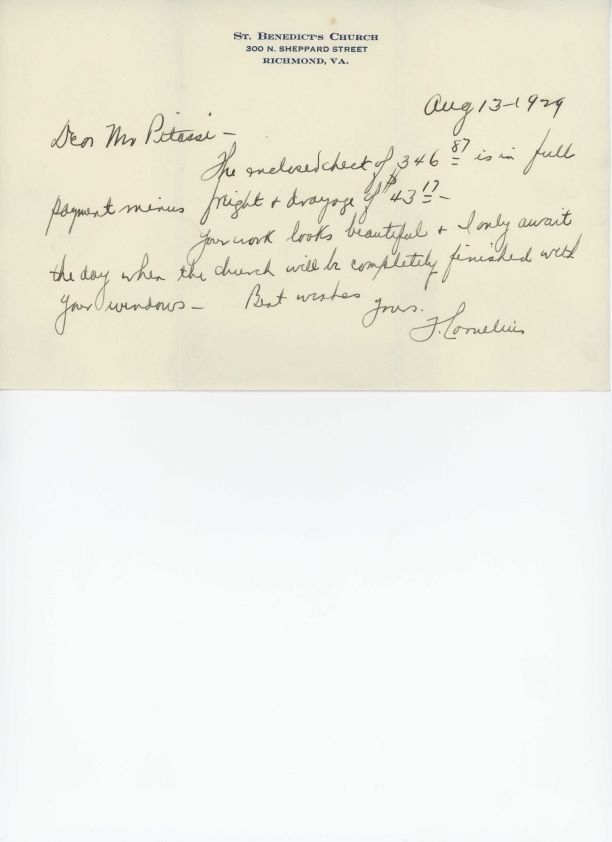 ST. BENEDICT'S CHURCH
300 N. SHEPPARD STREET
RICHMOND, VA.
Aug 13-1929
Dear Mr Pitassi -
The enclosed check of 346 87 is in full
payment minus freight & drayage of $43 17 -
Your work looks beautiful & I only await
the day when the church will be completely finished with
your windows - Best wishes
yours.
F. Cornelius